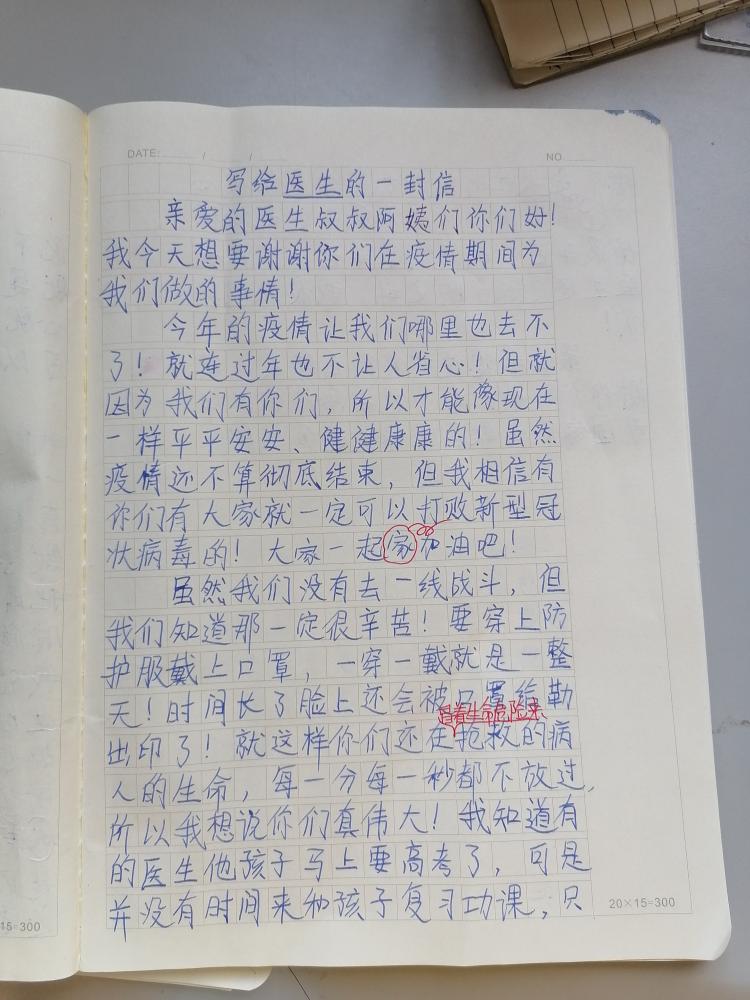 DATE: / /
NO
写给医生的一封信
亲爱的医生叔叔阿姨们你们好!
我今天想要谢谢你们在疫情期间为
我们做的事情!
今年的疫情让我们哪里也去不
了!就连过年也不让人省心!但就
因为我们有你们,所以才能像现在
一样平平安安、健健康康的!虽然
疫情还不算彻底结束,但我相信有
你们有大家就一定可以打败新型冠
状病毒的!大家一起家加油吧!
虽然我们没有去一线战斗,但
我们知道那一定很辛苦!要穿上防
护服戴上口罩,一穿一戴就是一整
天!时间长了脸上还会被口罩给勒
冒着生命危险来
出印了!就这样你们还在抢救的病
人的生命,每一分每一秒都不放过,
所以我想说你们真伟大!我知道有
的医生他孩子马上要高考了,可是
并没有时间来和孩子复习功课,只
15=300
20×15=300